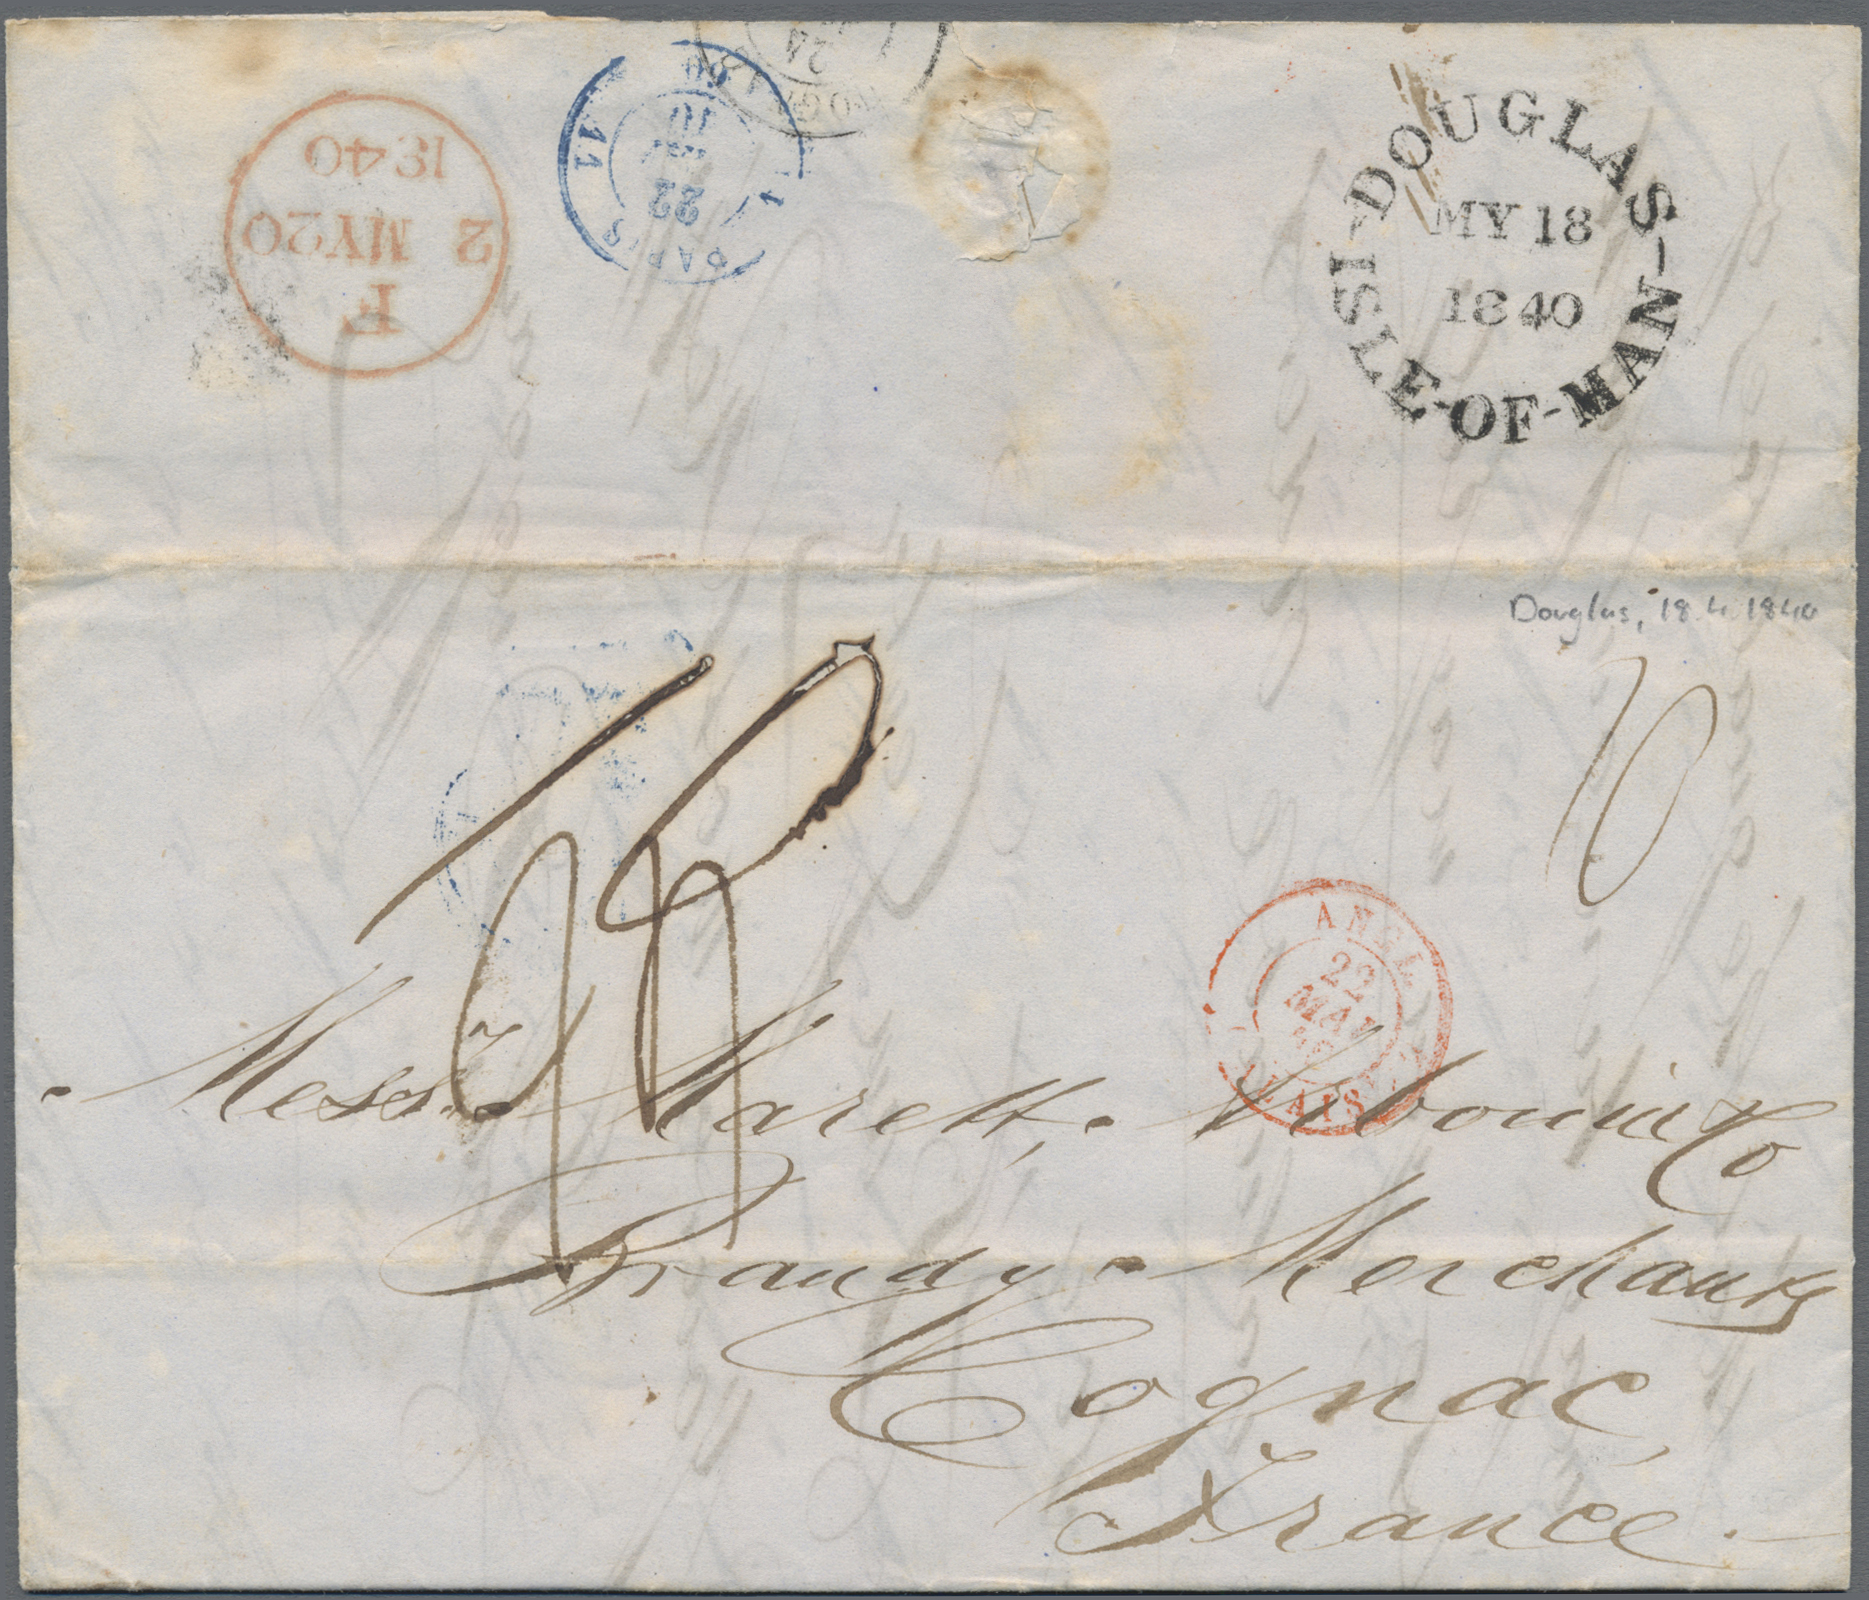 DOUGLAS-
ISLE-OF-MAN-
MY 18
1840
F
2 MY20
1840
PARIS
22
11
24
Douglas, 18.4.1840
10
ANGL.
22
MAI
40
CALAIS
Messrs. Marett,
& Co
Brandy Merchants
Cognac,
France.